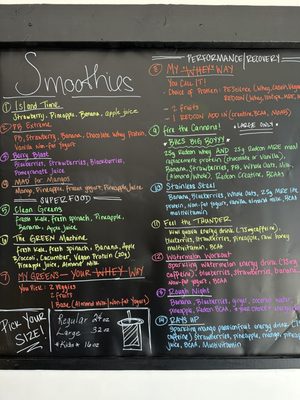 Smoothies
① Island Time
Strawberry, Pineapple, Banana, apple juice
② PB Extreme
PB, Strawberry, Banana, Chocolate Whey Protein
Vanilla Non-fat yogurt
③ Berry Blast
Blueberries, Strawberries, Blackberries,
Pomegranate Juice
④ MAD for Mangos
Mango, Pineapple, frozen yogurt, Pineapple Juice
SUPERFOOD
⑤ Clean Greens
Fresh Kale, fresh spinach, Pineapple,
Banana, Apple Juice
⑥ The GREEN Machine
Fresh Kale, fresh Spinach, Banana, Apple
Broccoli, Cucumber, Vegan Protein (20g)
Pineapple Juice, Almond Milk
⑦ MY GREENS - YOUR WHEY WAY
You Pick: 2 Veggies
2 Fruits
Base (Almond Milk, Non-fat Yogurt)
PICK YOUR
SIZE!
Regular 24oz
Large 32oz
*Kids* 16oz
PERFORMANCE/RECOVERY
⑧ MY "WHEY" WAY
YOU CALL IT!
Choice of Protein:
- 2 Fruits
- 1 REDCON ADD IN (Creatine, BCAA,
Fire the Cannons!
* LARGE ONLY *
* BIG BOTTY *
25g Redcon Whey AND 25g Redcon MRE meal
replacement protein (chocolate or vanilla),
Banana, Strawberries, PB, Whole Oats,
(Almond/Water), Redcon Creatine, BCAAs
⑩ Stainless Steel
Banana, Blueberry, Whole Oats, 25g MRE
protein, Non-fat yogurt, vanilla almond milk, BCAA,
multivitamin
⑪ Feel the THUNDER
Kiwi guava energy drink (75mg caffeine)
blueberry, strawberries, pineapple, raw honey
multivitamin, BCAA
⑫ Watermelon Workout
Sparkling watermelon energy drink (75mg
caffeine), blueberry, strawberries, banana,
Non-fat yogurt, BCAA
Rough Night
Banana, Blueberry, ginger, coconut water,
pineapple, Redcon BCAA
⑭ RAYS UP
Sparkling mango passionfruit energy drink
caffeine) strawberries, pineapple, mango, pineapple
juice, BCAA, Multivitamin